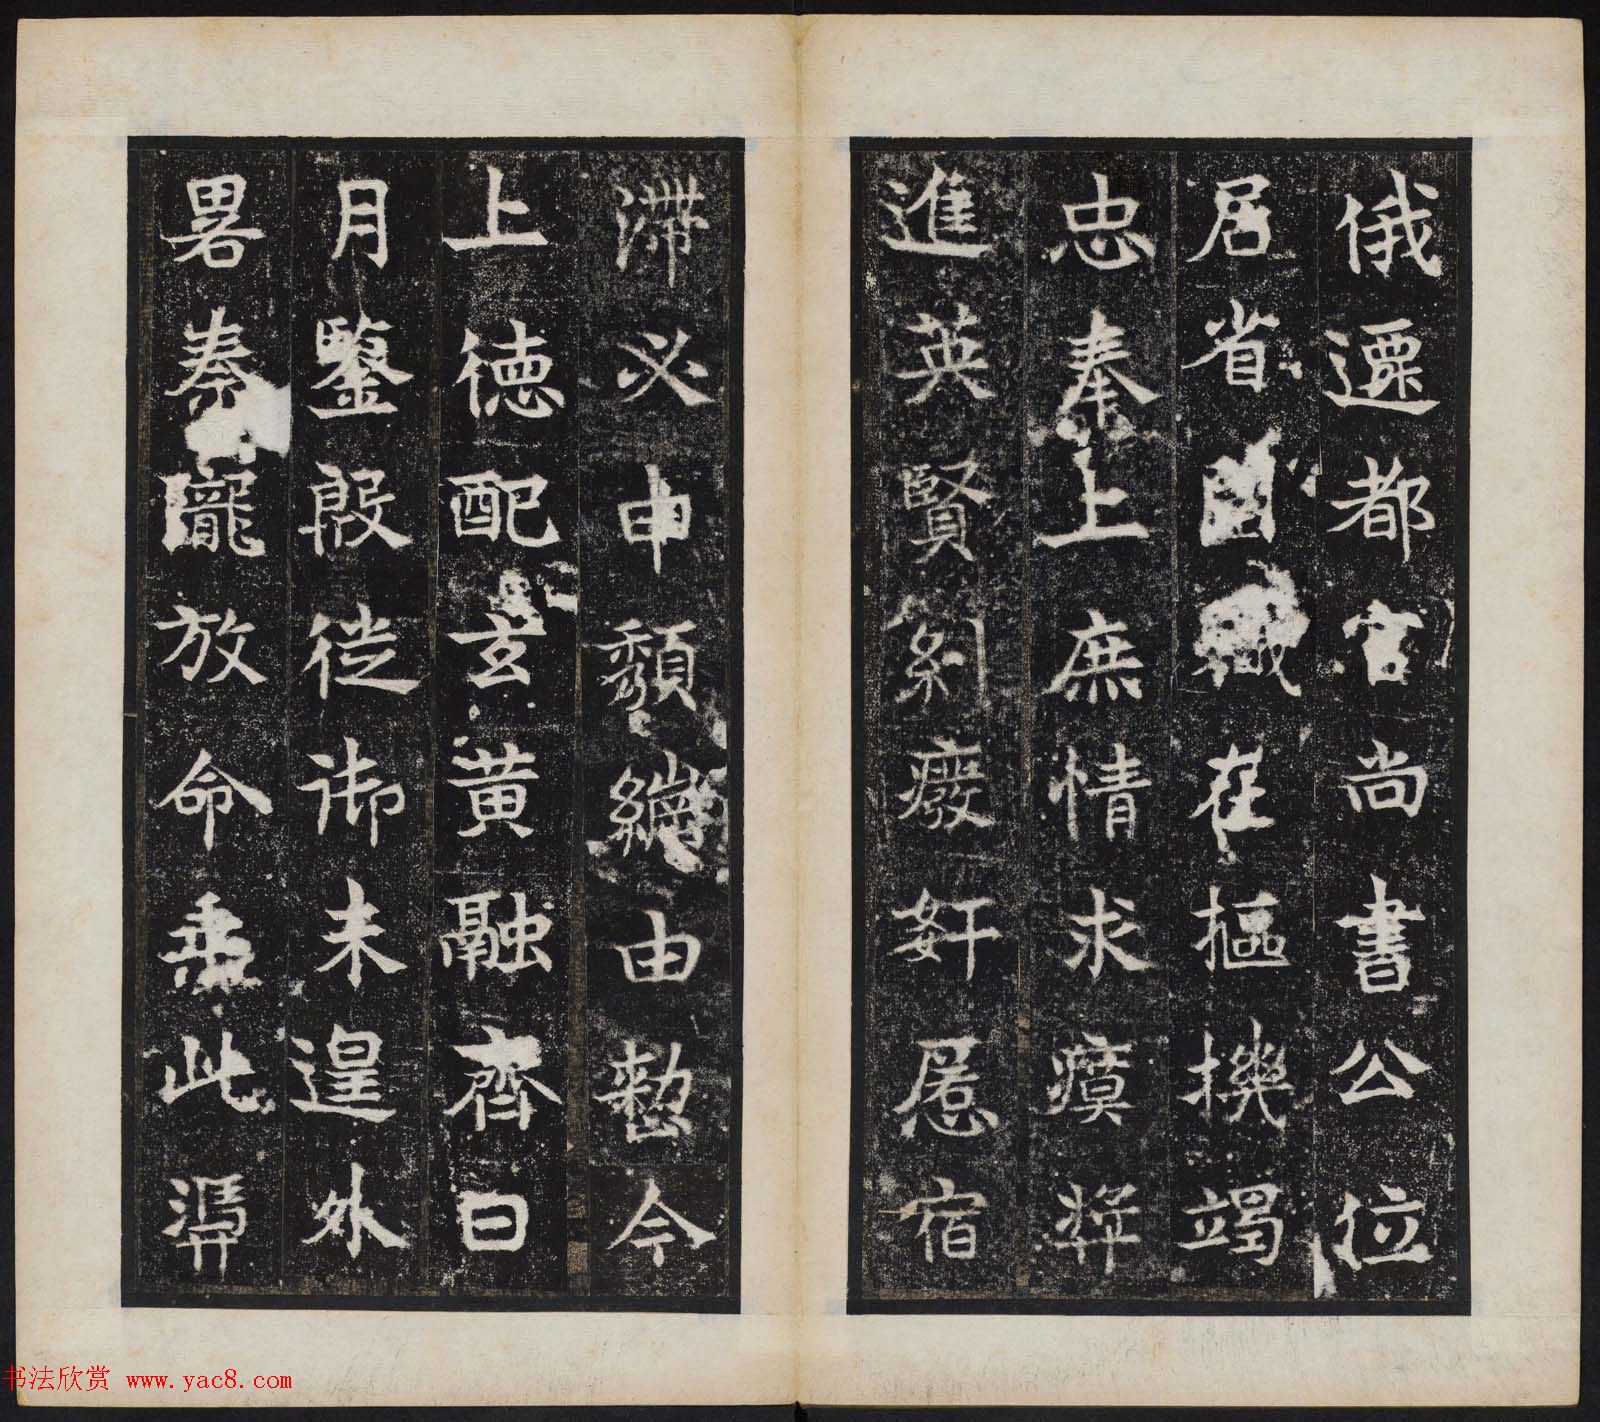 俄遷都官尚書公位
居省閣職在樞機竭
忠奉上庶情求瘼奬
進英賢糾癈奸慝宿
滯必申頽綱由整今
上德配玄黄融齊日
月鑒殷徙御未遑外
畧秦隴放命乘此
书法欣赏 www.yac8.com